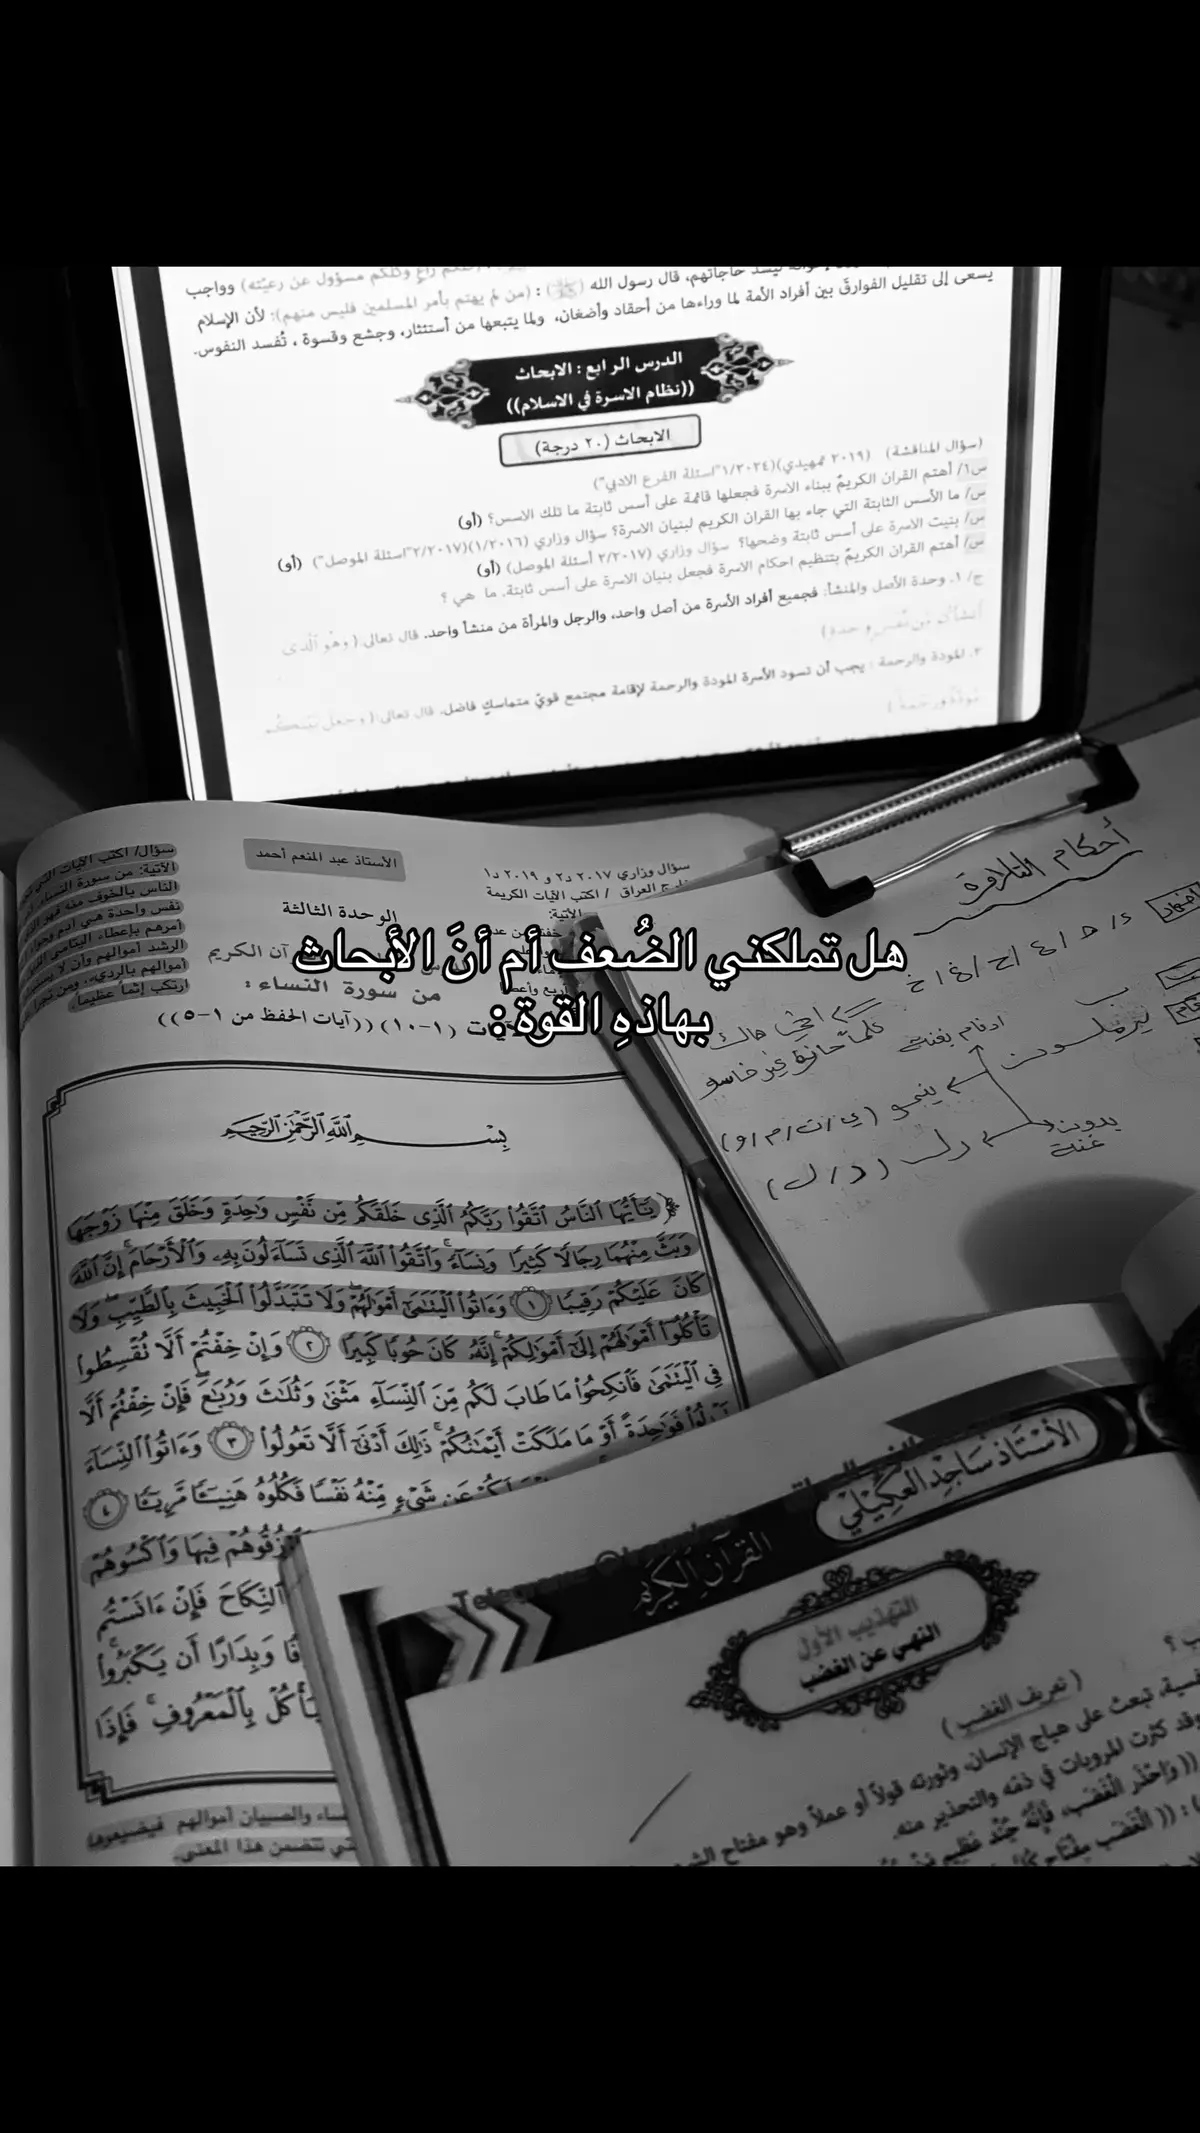 يسعى إلى تقليل الفوارق بين أفراد الأمة لما وراءها من أحقاد وأضغان، ولما يتبعها من أستئثار، وجشع وقسوة ، تُفسد النفوس.
حاجاتهم، قال رسول الله : (من لم يهتم بأمر المسلمين فليس منهم): لأن الإسلام
وكلكم مسؤول عن رعيته) وواجب
الدرس الرابع : الابحاث
((نظام الاسرة في الاسلام))
الابحاث (٢٠ درجة)
(سؤال المناقشة) (٢٠١٩ تمهيدي)(١/٢٠٢٤"اسئلة الفرع الادبي")
س١/ أهتم القران الكريمُ ببناء الاسرة فجعلها قائمة على أسس ثابتة ما تلك الاسس؟ (أو)
س/ ما الأسس الثابتة التي جاء بها القران الكريم لبنيان الاسرة؟ سؤال وزاري (١/٢٠١٦)(٢/٢٠١٧"اسئلة الموصل") (أو)
س/ بنيت الاسرة على أسس ثابتة وضحها؟ سؤال وزاري (٢/٢٠١٧ أسئلة الموصل) (أو)
س/ أهتم القران الكريمُ بتنظيم احكام الاسرة فجعل بنيان الاسرة على أسس ثابتة، ما هي ؟
ج/ ١. وحدة الأصل والمنشأ: فجميع أفراد الأسرة من أصل واحد، والرجل والمرأة من منشأ واحد. قال تعالى ( وهو الذي
أنشأكم من نفس واحدة)
٢. المودة والرحمة : يجب أن تسود الأسرة المودة والرحمة لإقامة مجتمع قويّ متماسكٍ فاضل. قال تعالى:( وجعل بينكم
مودة ورحمة )
الأستاذ عبد المنعم أحمد
سؤال وزاري ٢٠١٧ د٢ و ٢٠١٩ د١
العراق / اكتب الآيات الكريمة
الآتية:
سؤال/ اكتب الآيات
الآتية: من سورة النساء
الناس بالخوف منه فهو
نفس واحدة هي
أمرهم بإعطاء اليتامى
الرشد أموالهم وأن لا
أموالهم بالردي، ومن
ارتكب إثماً عظيماً.
الوحدة الثالثة
آن الكريم
من سورة النساء :
الآيات (١-١٠) ((آيات الحفظ من ١-٥))
أحكام التلاوة
هل تملكني الضُعف أم أنَ الأبحاث
بهاذهِ القوة :
ادغام بغنة
ينمو (ي/ن/م/و)
بدون
غنة
رل (ر/ل)
بِسْمِ ٱللَّهِ ٱلرَّحْمَٰنِ ٱلرَّحِيمِ
﴿ يَٰٓأَيُّهَا ٱلنَّاسُ ٱتَّقُوا۟ رَبَّكُمُ ٱلَّذِى خَلَقَكُم مِّن نَّفْسٍ وَٰحِدَةٍ وَخَلَقَ مِنْهَا زَوْجَهَا
وَبَثَّ مِنْهُمَا رِجَالًا كَثِيرًا وَنِسَآءً ۚ وَٱتَّقُوا۟ ٱللَّهَ ٱلَّذِى تَسَآءَلُونَ بِهِۦ وَٱلْأَرْحَامَ ۚ إِنَّ ٱللَّهَ
كَانَ عَلَيْكُمْ رَقِيبًا ١ وَءَاتُوا۟ ٱلْيَتَٰمَىٰٓ أَمْوَٰلَهُمْ ۖ وَلَا تَتَبَدَّلُوا۟ ٱلْخَبِيثَ بِٱلطَّيِّبِ ۖ وَلَا
تَأْكُلُوٓا۟ أَمْوَٰلَهُمْ إِلَىٰٓ أَمْوَٰلِكُمْ ۚ إِنَّهُۥ كَانَ حُوبًا كَبِيرًا ٢ وَإِنْ خِفْتُمْ أَلَّا تُقْسِطُوا۟
فِى ٱلْيَتَٰمَىٰ فَٱنكِحُوا۟ مَا طَابَ لَكُم مِّنَ ٱلنِّسَآءِ مَثْنَىٰ وَثُلَٰثَ وَرُبَٰعَ ۖ فَإِنْ خِفْتُمْ أَلَّا
فَوَٰحِدَةً أَوْ مَا مَلَكَتْ أَيْمَٰنُكُمْ ۚ ذَٰلِكَ أَدْنَىٰٓ أَلَّا تَعُولُوا۟ ٣ وَءَاتُوا۟ ٱلنِّسَآءَ
لَكُمْ عَن شَىْءٍ مِّنْهُ نَفْسًا فَكُلُوهُ هَنِيٓـًٔا مَّرِيٓـًٔا ٤
ٱرْزُقُوهُمْ فِيهَا وَٱكْسُوهُمْ
ٱلنِّكَاحَ فَإِنْ ءَانَسْتُم
وَبِدَارًا أَن يَكْبَرُوا۟ ۚ
يَأْكُلْ بِٱلْمَعْرُوفِ ۚ فَإِذَا
والصبيان أموالهم فيضيعوها
تتضمن هذا المعنى.
الأستاذ ساجد العكيلي
القرآن الكريم
Telegram
التهذيب الأول
النهي عن الغضب
( تعريف الغضب )
تبعث على هياج الإنسان، وثورته قولاً أو عملاً وهو مفتاح
وقد كثرت المرويات في ذمّه والتحذير منه.
((وَاحْذَرِ الْغَضَبَ، فَإِنَّهُ جُنْدٌ عَظِيمٌ
(( الْغَضَب مِفْتَاح